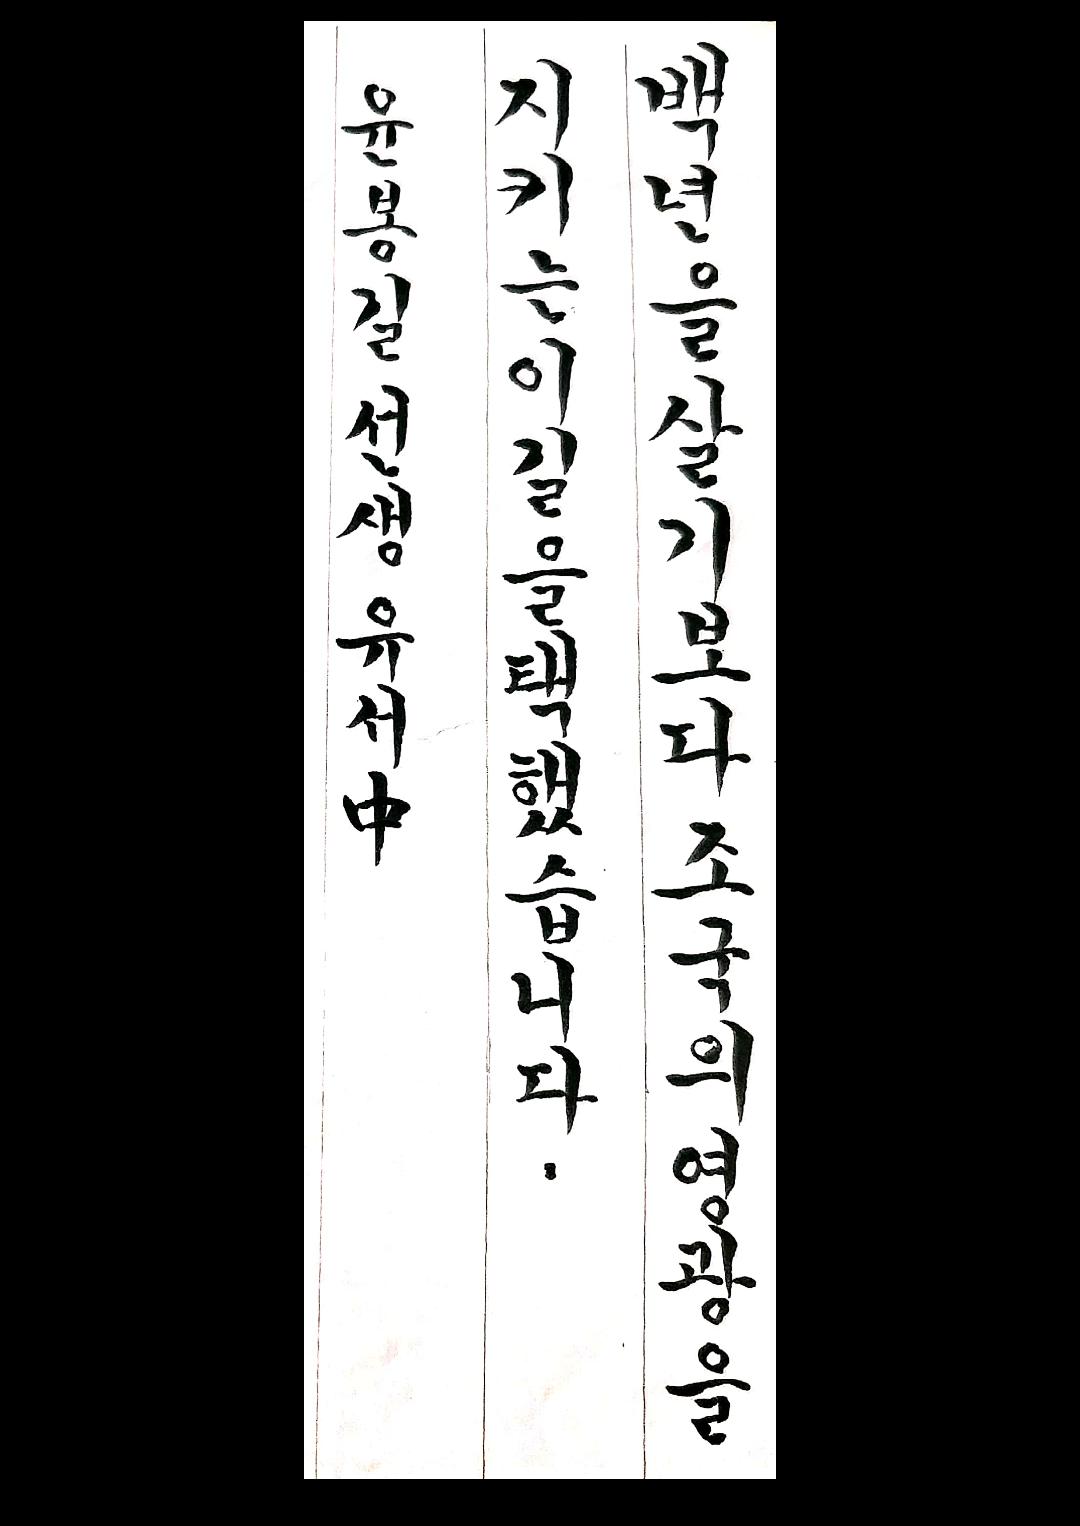 백년을살기보다 조국의영광을
지키는이길을택했습니다.
윤봉길 선생 유서中